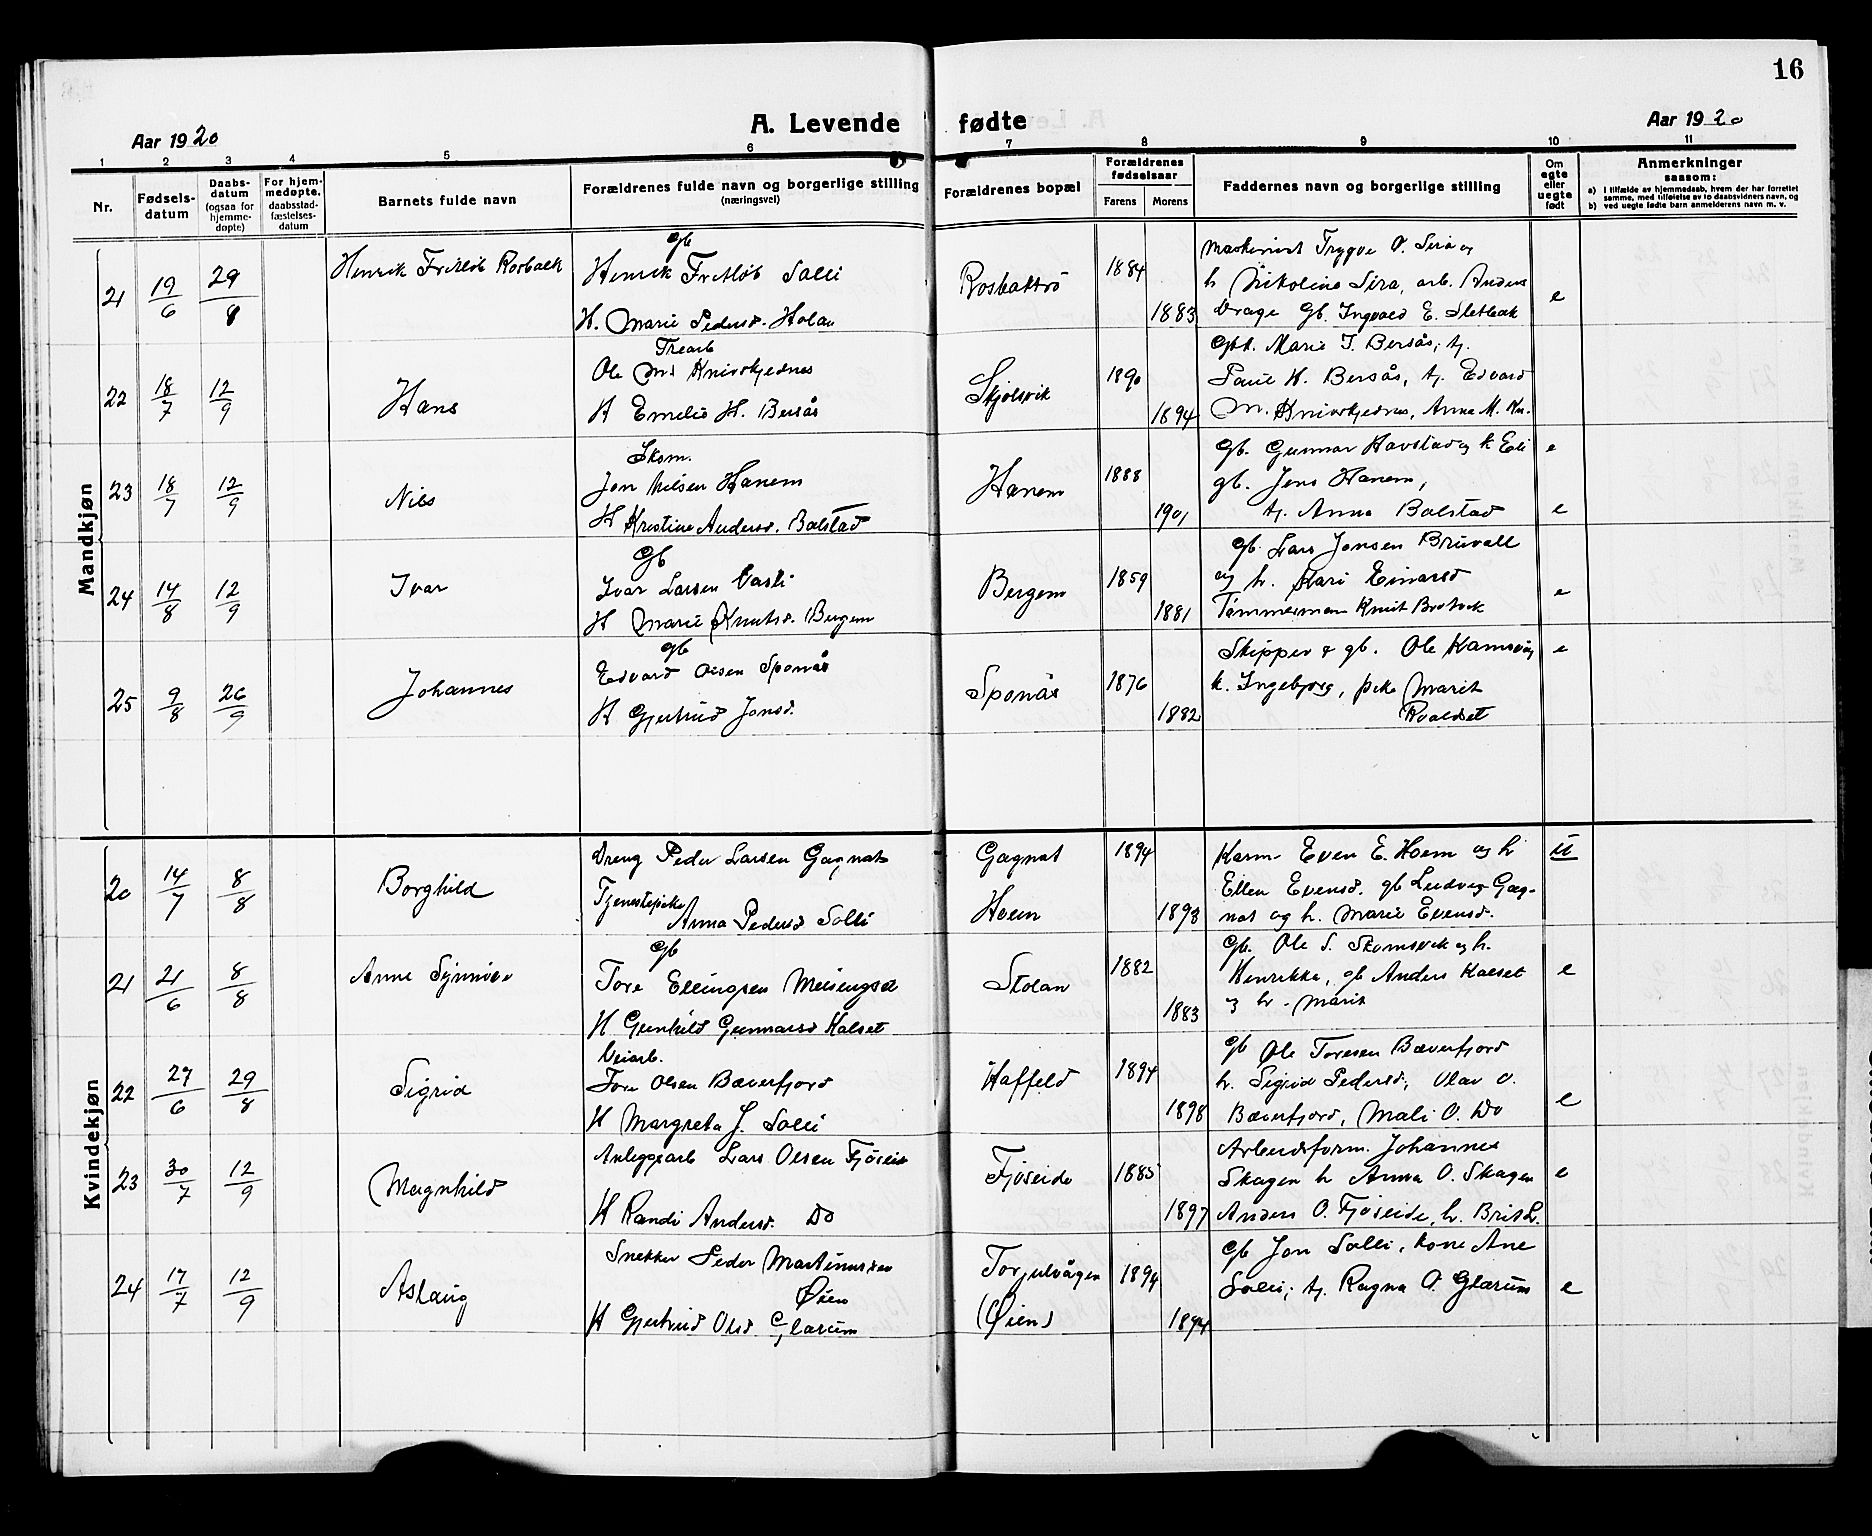 16
A. Levende fødte
Aar 1920
Aar 1920
1 2 3 4 5 6 7 8 9 10 11
Nr.
Fødsels-
datum
Daabs-
datum
(ogsaa for
hjemme-
døpte)
For hjem-
medøpte,
daabsstad-
fæstelses-
datum
Barnets fulde navn
Forældrenes fulde navn og borgerlige stilling
(næringsvei)
Forældrenes bopæl
Forældrenes
fødselsaar
Farens
Morens
Faddernes navn og borgerlige stilling
Om
egte
eller
uegte
født
Anmerkninger
saasom:
a) I tilfælde av hjemmedaab, hvem der har forrettet
samme, med tilføielse av to daabsvidners navn, og
b) ved uegte fødte barn anmelderens navn m. v.
Mandkjøn
21 19/6 29/8
Henrik Fritløb Rosbak
gb
Henrik Fritløb Solli
H. Marie Pedersd. Holan
1884
1883
Maskinist Trygve O. Sira og
h Nikoline Sira, arb. Anders
Drage Gb. Ingvald E. Sletbak
e
22 18/7 12/9
Hans
Trearb
Ole Ms Knivskjednes
H Emelie H. Bersås
Skjølsvik
1890
1894
Gbk. Marie I. Bersås, tj.
H. Bersås, tj. Edvard
M. Knivskjednes, Anna M. Kn.
23 18/7 12/9
Nils
Skom.
Jon Nilsen Hanem
H Kristine Andersd. Bolstad
Hanem
1888
1901
gb. Gunnar Havstad og k Eli
gb. Jens Hanem,
tj. Anna Bolstad
e
e
24 14/8 12/9
Ivar
Gb
Ivar Larsen Vasli
H Marie Knutsd. Bergem
Bergem
1859
1881
gb. Lars Jonsen Bruvoll
og h. Kari Einarsd
Tømmermann Knut
e
25 9/8 26/9
Johannes
gb
Edvard Olsen Sponås
H Gjertrud Jonsd.
Sponås
1876
1882
Skipper & gb. Ole Kamsvåg
k. Ingebjørg, pike Marit
Kvalset
e
Kvindekjøn
20 14/7 8/8
Borghild
Dreng Peder Larsen Gagnat
Tjenestepike
Anna Pedersd Solli
Gagnat
Hoem
1894
1893
Karm. Even E. Hoem og h
Ellen Evensd. gb Ludvig Gag-
nat og h. Marie Evensd.
u
21 21/6 8/8
Anne Synnøve
gb
Tore Ellingsen Meisingset
H Gunhild Gunnarsd Kalset
Stolan
1882
1883
gb. Ole S. Skomsvik og h.
Henrikka, gb Anders Kalset
og h. Marit
e
22 27/6 29/8
Sigrid
Veiarb.
Tore Olsen Bæverfjord
H Margreta J. Solli
Haffeld
1894
1898
gb Ole Toresen Bæverfjord
h. Sigrid Pedersd, Olav O.
Bæverfjord, Mali O. Do
e
23 30/7 12/9
Magnhild
Anleggsarb Lars Olsen Fjøseid
H Randi Andersd. Do
Fjøseide
1885
1897
Arbeidsform. Johannes
Skagen h Anna O. Skagen
Anders O. Fjøseide, h. Brit L.
e
24 17/7 12/9
Aslaug
Snekker Peder Martinussen
Øien
H Gjertrud Olsd Glærum
Torjulvågen
(Øien)
1894
1894
gb Jon Solli, kone Ane
Solli, tj. Ragna O. Glærum
e